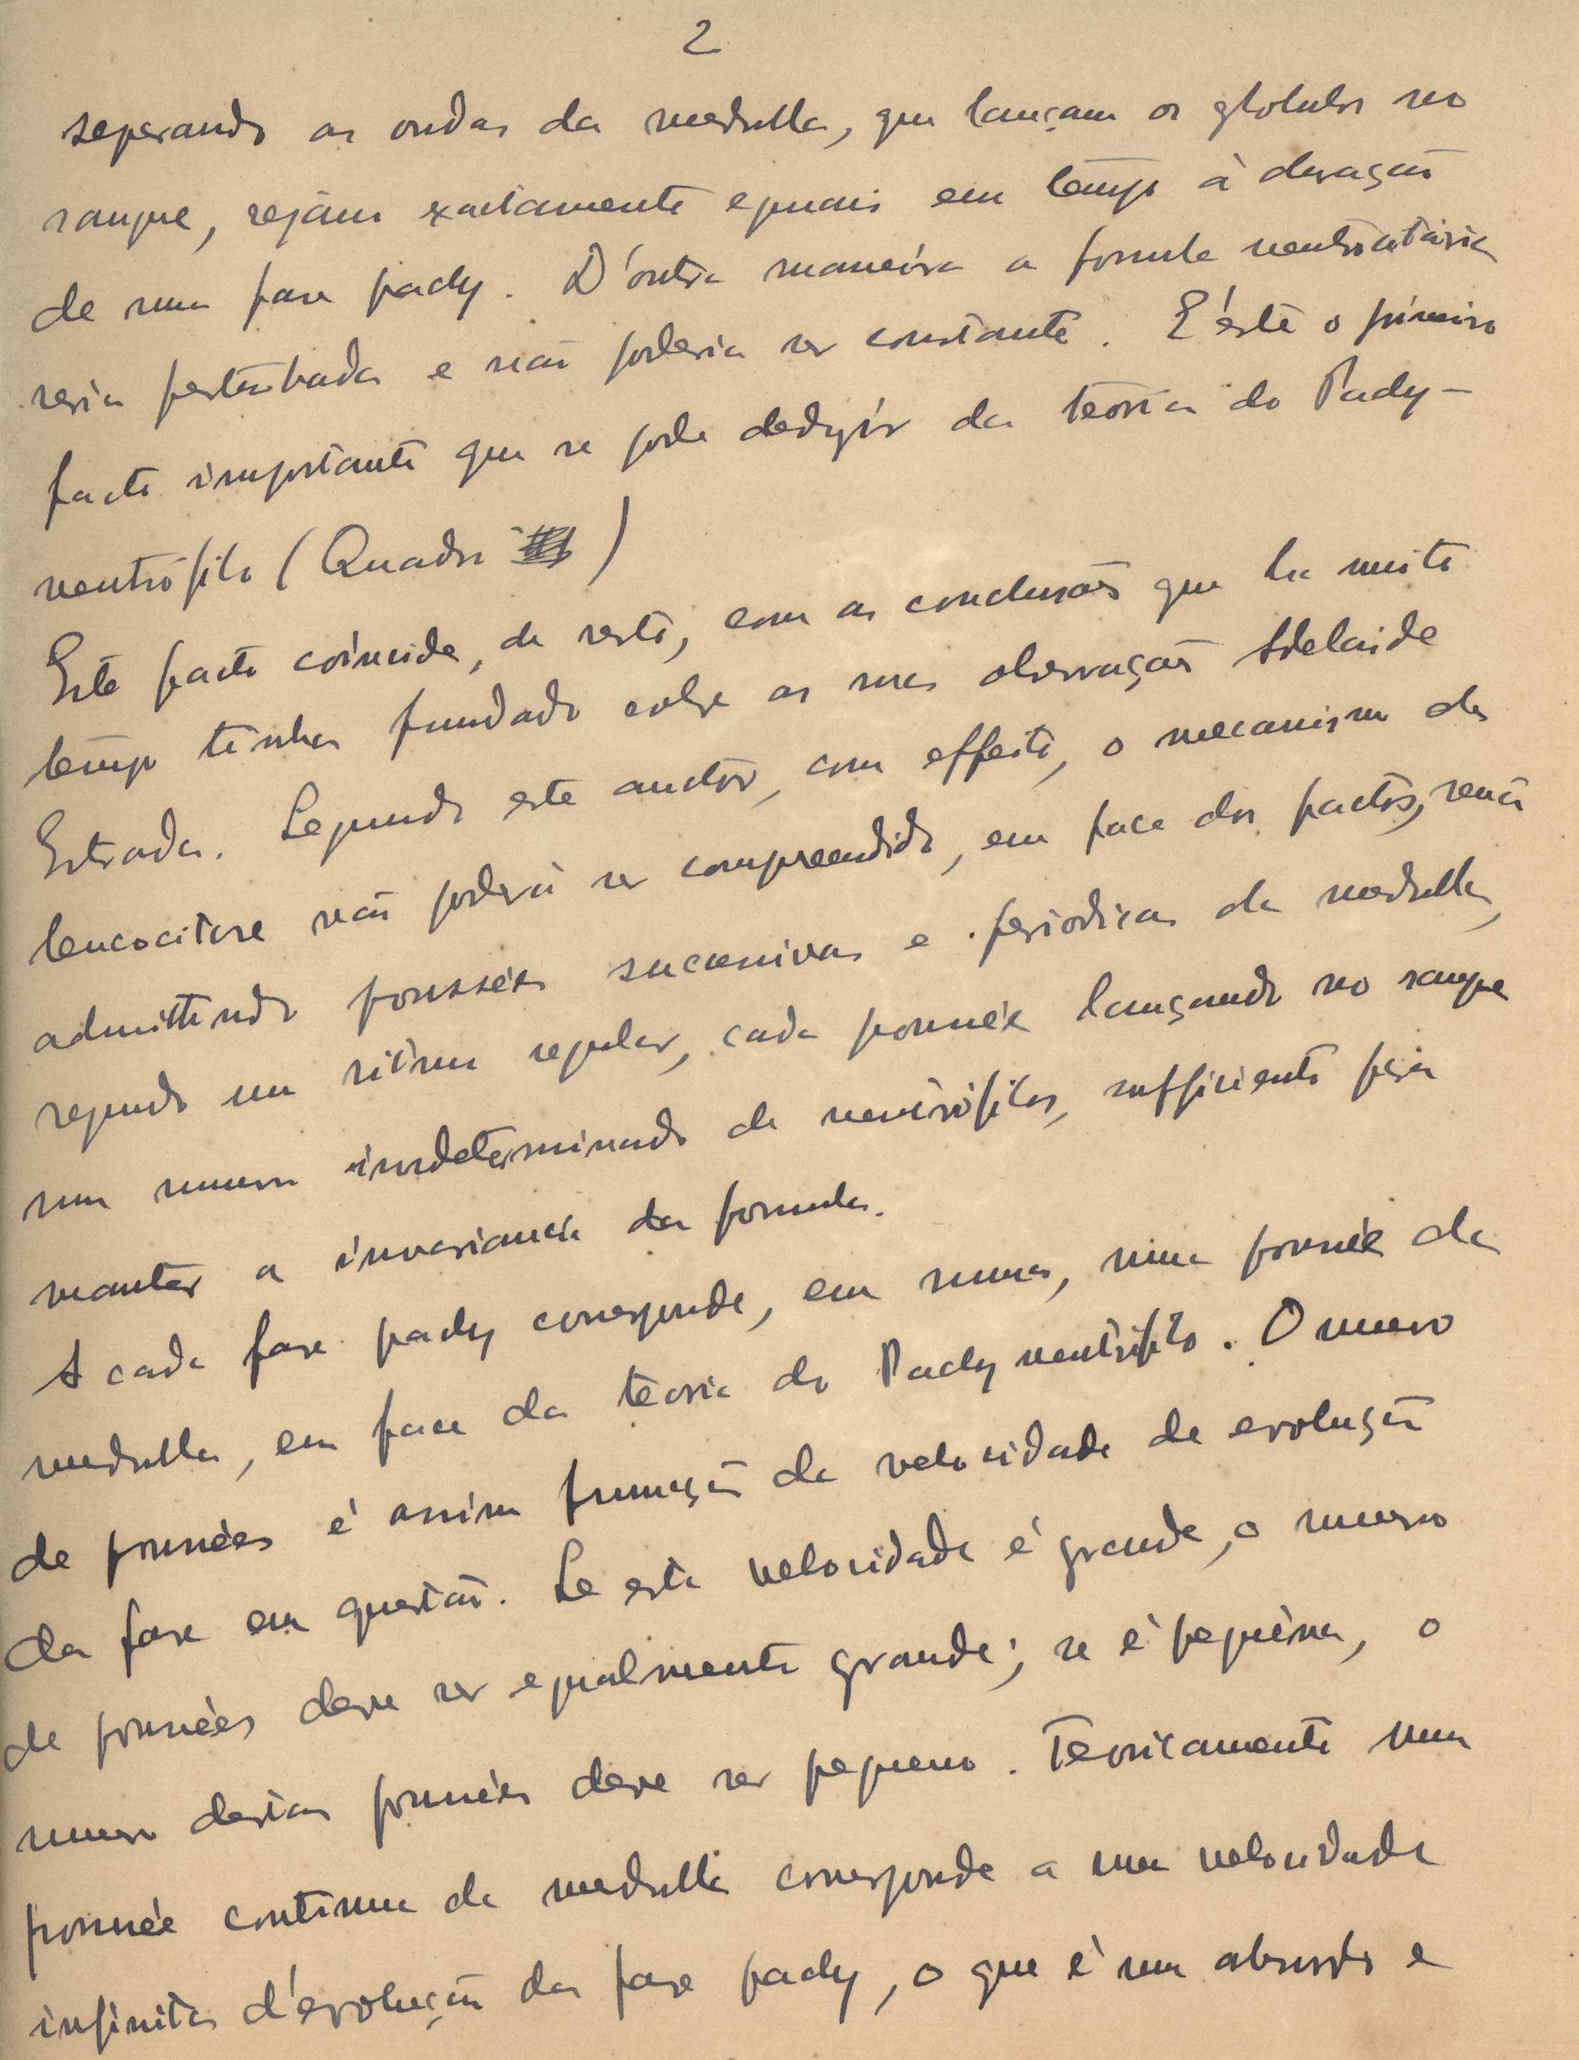 2
separando as ondas da medulla, que lançam os globulos no
sangue, sejam exactamente eguais em tempo à duração
de uma fase pady. D'outra maneira a formula neutrocitária
seria perturbada e não poderia ser constante. E' este o primeiro
facto importante que se pode deduzir da teoria do Pady-
neutrófilo (Quadro )
Este facto coincide, de resto, com as conclusões que ha muito
tempo tinha fundado sobre as suas observações Adelaide
Estrada. Segundo este auctor, com effeito, o mecanismo da
leucocitose não poderá ser compreendido, em face dos factos, senão
admittindo poussées sucessivas e periodicas da medulla,
segundo um ritmo regular, cada poussée lançando no sangue
um numero indeterminado de neutrófilos, sufficiente para
manter a invariancia da formula.
A cada fase pady corresponde, em suma, uma poussée da
medulla, em face da teoria do Pady neutrófilo. O numero
de poussées é assim funcção da velocidade de evolução
da fase em questão. Se esta velocidade é grande, o numero
de poussées deve ser egualmente grande; se é pequena, o
numero destas poussées deve ser pequeno. Teoricamente uma
poussée continua da medulla corresponde a uma velocidade
infinita d'evolução da fase pady, o que é um absurdo e